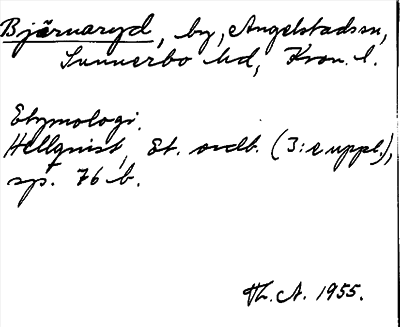 Bjärnaryd, by, Angelstads sn,
Sunnerbo hd, Kron. l.
Etymologi.
Hellquist, Et. ordb. (3:e uppl.),
sp. 76 b.
Th. A. 1955.